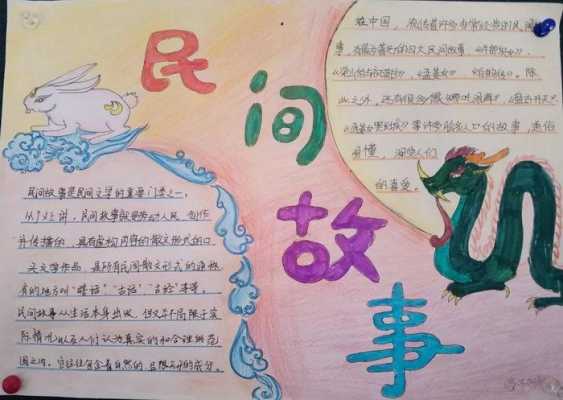 民间故事
在中国，流传着许多非常经典的民间故
事，有最为著名的四大民间故事，《牛郎织女》、
《梁山伯与祝英台》、《孟姜女》、《白蛇传》。除
此之外，还有很多像《哪吒闹海》、《盘古开天》、
《孟姜女哭长城》等许多脍炙人口的故事，通俗
易懂，深受人们
的喜爱。
民间故事是民间文学的重要门类之一。
从广义上讲，民间故事就是劳动人民创作
并传播的、具有虚构内容的散文形式的口
头文学作品，是所有民间散文形式的通称，
有的地方叫“瞎话”、“古话”、“古经”等等。
民间故事从生活本身出发，但又并不局限于实
际情况以及人们认为真实的和合理的范
围之内。它们往往包含着自然的、异想天开的成分。